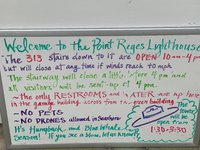 Welcome to the Point Reyes Lighthouse
The 313 stairs down to it are OPEN 10am-4pm
but will close at any time if winds reach mph
The stairway will close a little before 4 pm and
all visitors will be sent up at 4 pm.
- the only RESTROOMS and WATER are up here
in the garage building across from the green building
- NO PETS
- NO DRONES allowed in Seashore
It's Humpback and Blue Whale
Season! If you see a blow, let me know!
The
will be
open from
1:30-3:30